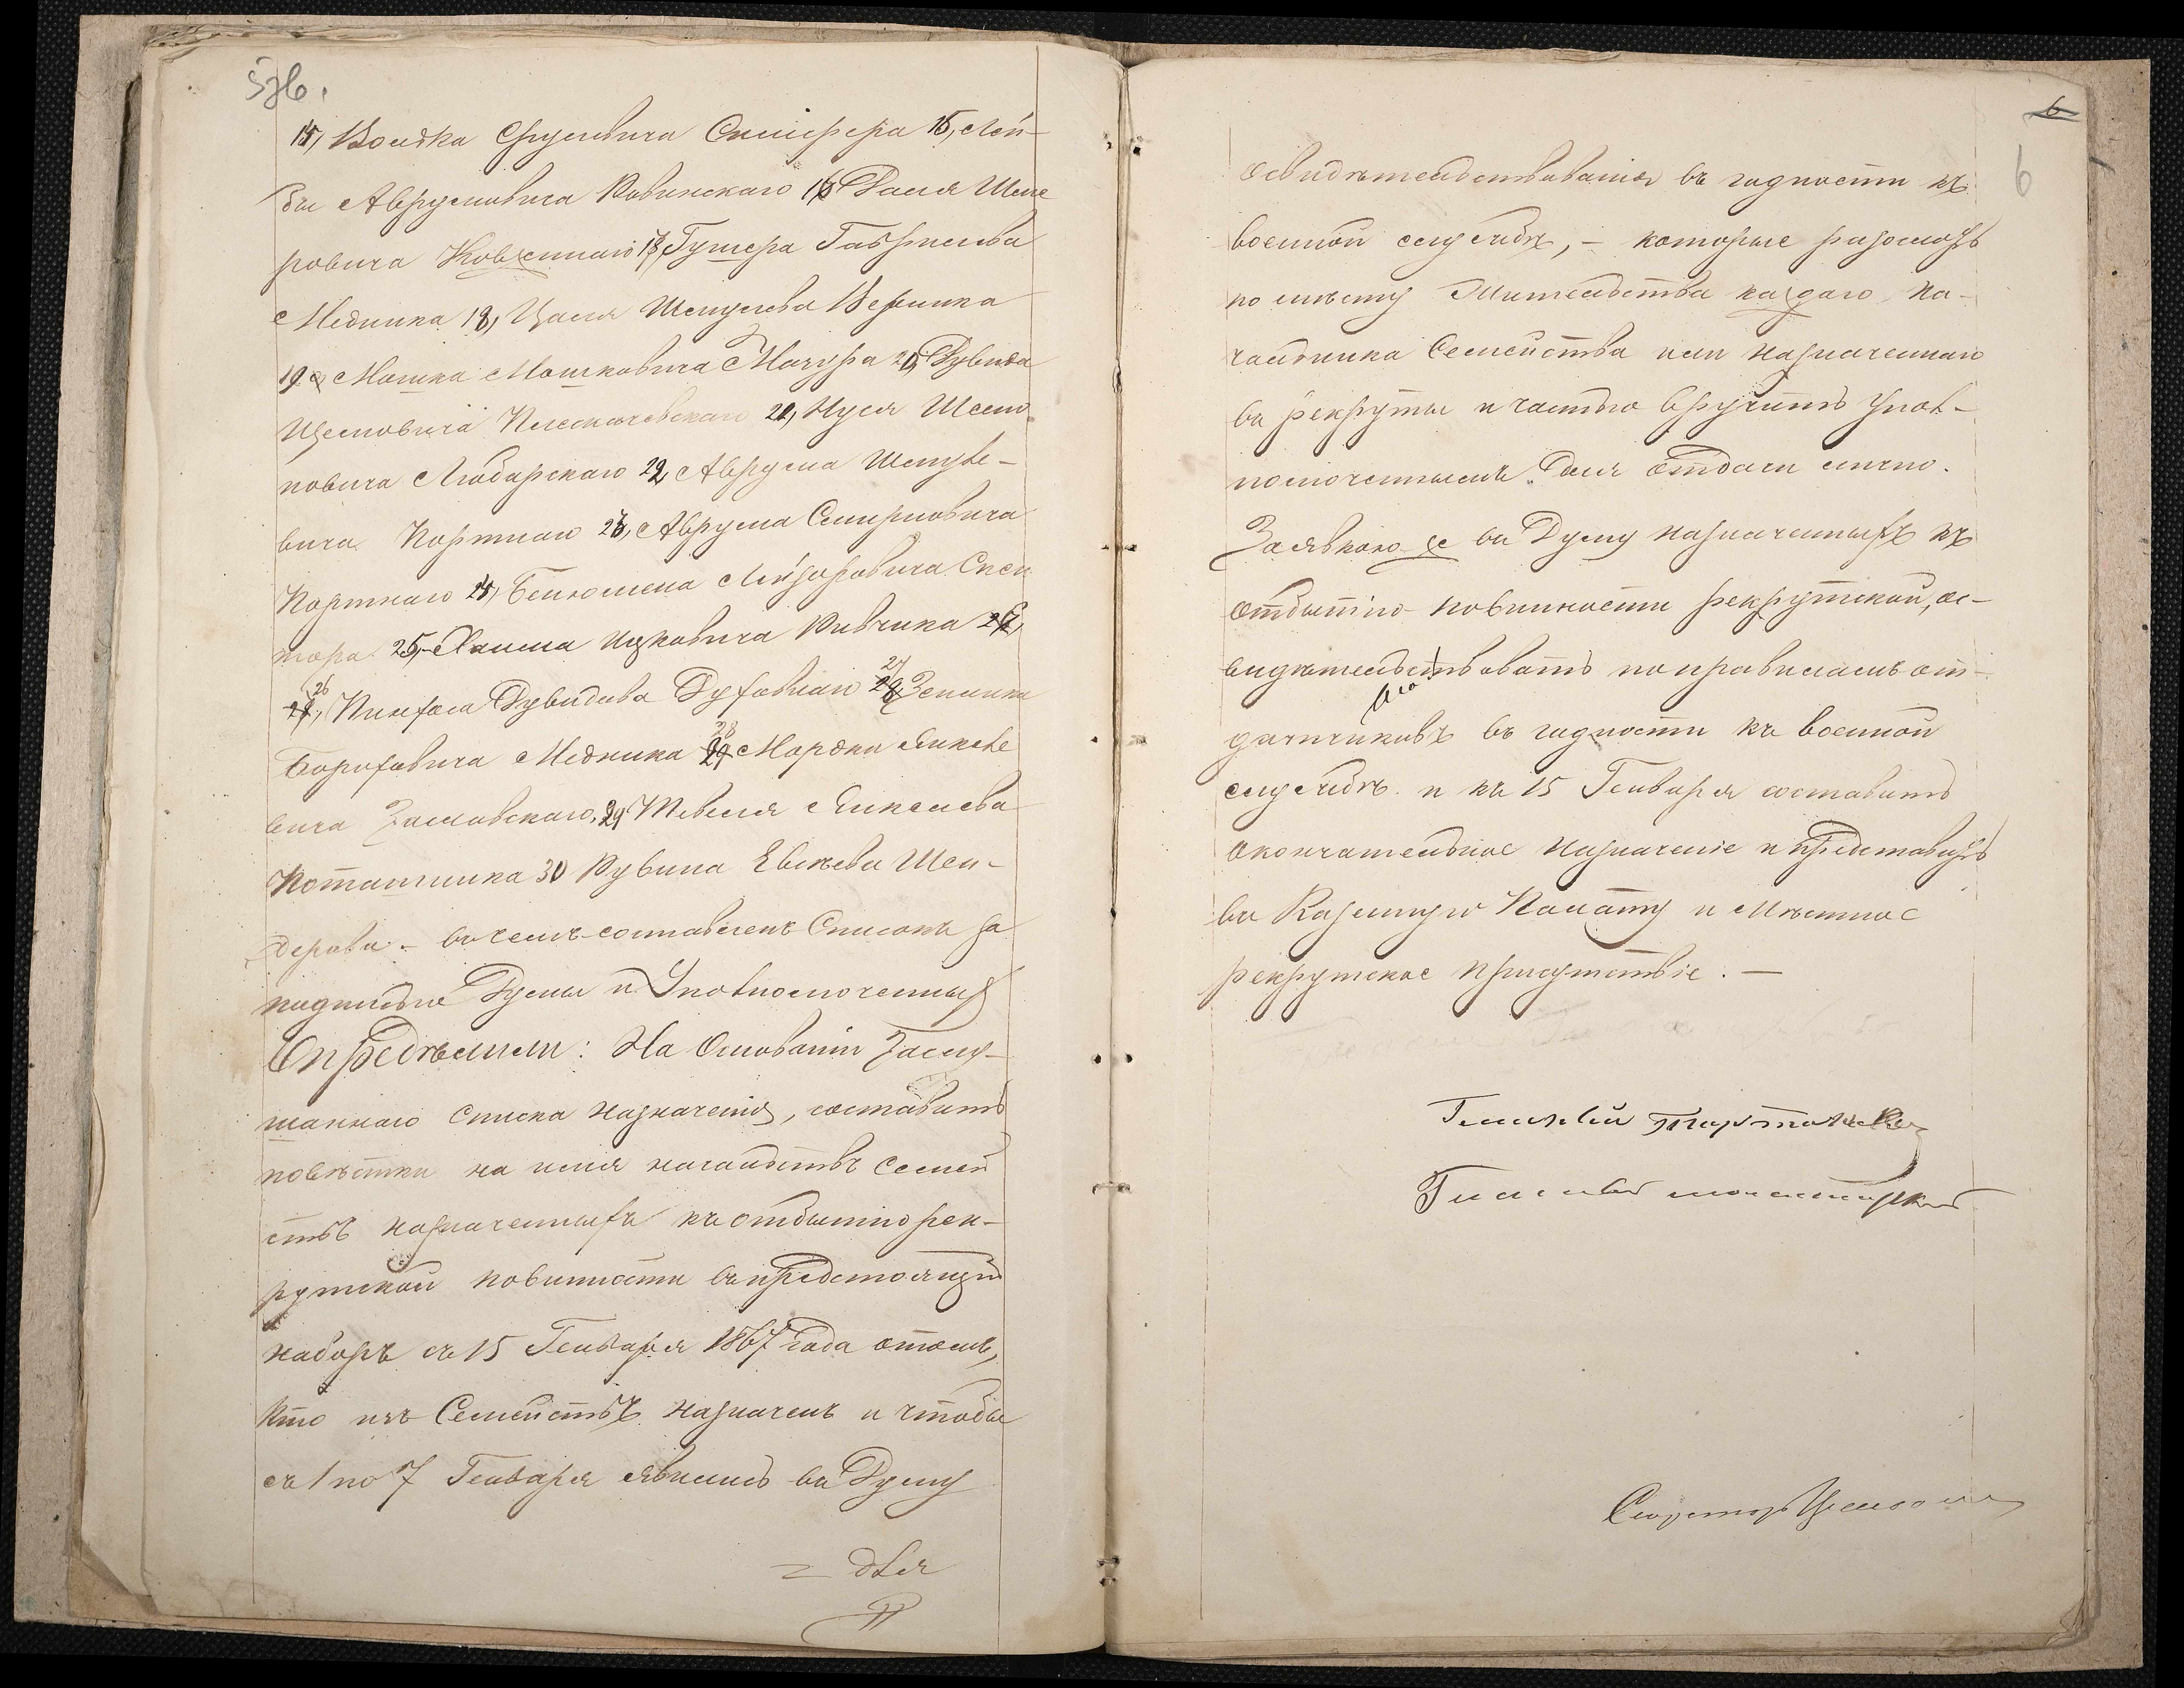 5 зв.
14, Волька Срулевича Спшефера 15, Лей-
бы Аврумовича Ровинского 16 Вольа Шме
ровича Ковжинаго 17, Гушера Габрилева
Медника 18, Цаля Шмулева Верника
19, Мошка Мошковича Мазура 20, Дувида
Шемовича 21, Нуся Шлио
мовича Любарскаго 22, Аврума Шмуле-
вича Портнаго 23, Аврума Смирновича
Портнаго 24, Бенюмена Лейзоровича Спек
тора 25, Хаима Ицковича Ривчика
26, Пинхаса Дувидова Духовнаго 27, Зельмана
Бороховича Медника 28 Мордка Янкеле
вича Заславскаго, 29, Тевеля Янкелева
Поташника 30 Рувина Евсѣева Шен-
дерова – въ чемъ составленъ Списокъ за
подписью Думы и Уполномоченныхъ
Опредѣлили: На Основаніи Заслу-
шаннаго списка назначенія, составить
повѣстки на имя начальствъ Семей
ствъ назначенныхъ къ отбытію рек-
рутской повинности въ предстоящій
наборъ съ 15 Генваря 1867 Года о томъ,
Кто изъ Семействъ назначенъ и чтобы
съ 1 по 7 Генваря явились въ Думу
= для
6
6
Освидѣтельствованія въ годности къ
военной службѣ, – которые разослать
по мѣсту Жительства каждаго На-
чальника Семейства или назначеннаго
въ рекруты и частью вручить Упол-
номоченнымъ для Отдачи лично.
За явкою же въ Думу назначенныхъ къ
отбытію повинности рекрутской, ос-
видѣтельствовать по правиламъ от-
датчиковъ въ годности къ военной
службѣ и къ 15 Генваря составить
окончательное назначеніе и представить
въ Казенную Палату и Мѣстное
рекрутское Присутствіе. –
Гласный
Гласный
Секретарь